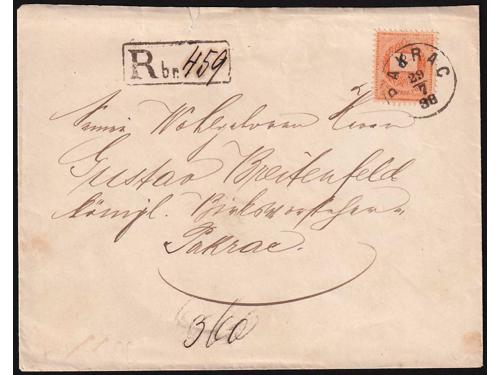 R br. 459
PAKRAC
29
7
98
Seiner Wohlgeboren Herrn
Gustav Breitenfeld
königl. Bezirksvorsteher
Pakrac.
360